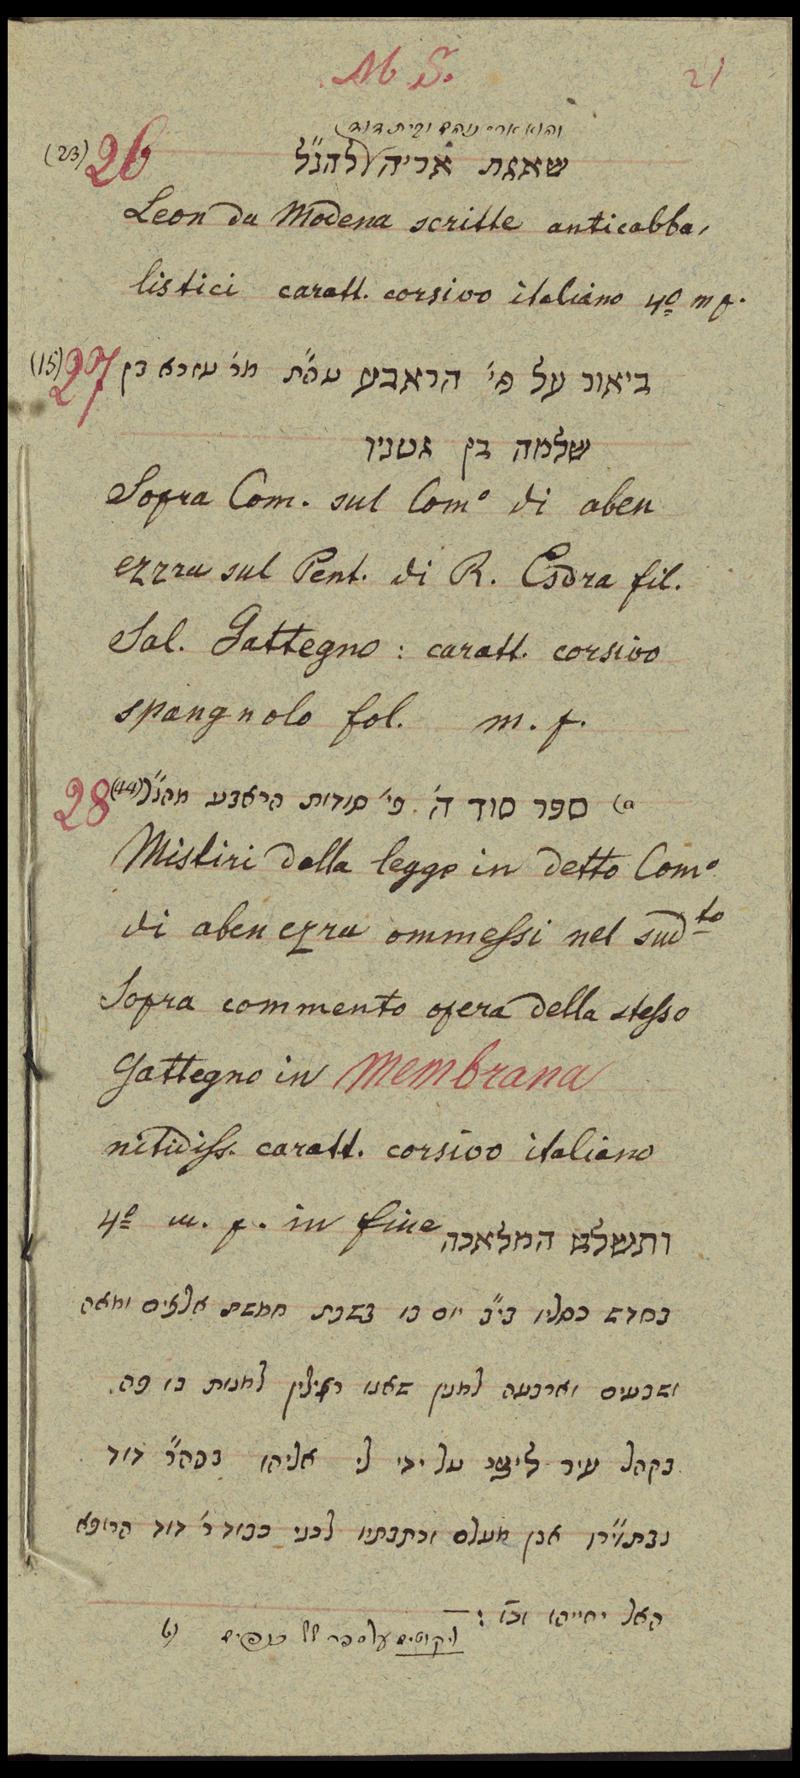 M S. 21
והוא ארי נוהם ובית דוד
(23) 26 שאגת אריה להנ"ל
Leon da Modena scritte anticabba,
listici caratt. corsivo italiano 4º m f.
(15) 27 ביאור על פי' הראבע עה"ת מר' עזרא בן
שלמה בן גטניו
Sopra Com. sul Comº di aben
ezzra sul Pent. di R. Esdra fil.
Sal. Gattegno : caratt. corsivo
spangnolo fol. m. f.
28 (44) a) ספר סוד ה'. פי' סודות הראבע מהנ"ל
Mistiri della legge in detto Comº
di aben ezra ommessi nel sud.to
Sopra commento opera della stesso
Gattegno in Membrana
nitidiss. caratt. corsivo italiano
4º m. f. in fine ותשלם המלאכה
בחדש כסליו כ"ב יום בו בשנת חמשת אלפים ומאה
ושבעים וארבעה למנין שאנו רגילין למנות בו פה
בקהל עיר על ידי לי אליהו בכה"ר דוד
אבן מעלם וכתבתיו לבני כבוד ר' דוד הרופא
האל יחייהו וכו' :
b) ליקוטים על ספר של כנפים